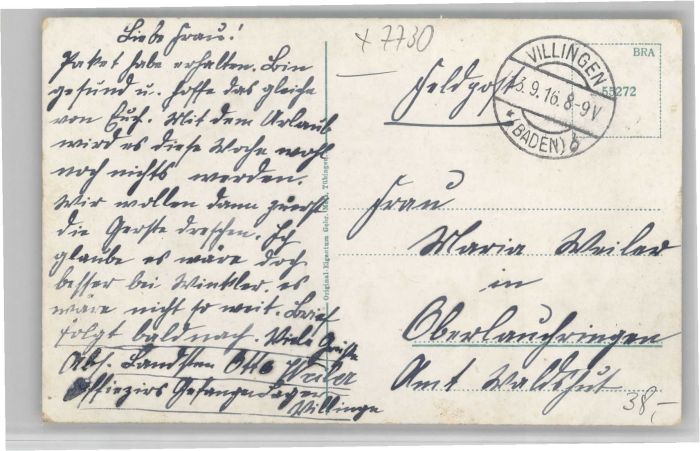 Liebe Frau!
Paket habe erhalten. Bin
gesund u. hoffe das gleiche
von Euch. Mit dem Urlaub
wird es diese Woche wohl
noch nichts werden.
Wir wollen dann zuerst
die Gerste dreschen. Ich
glaube es wäre doch
besser bei Winkler. es
wäre nicht so weit. Brief
folgt bald nach. Viele Grüße
Abs. Landstm Otto Weiler
Offiziers Gefangen Lager
Villingen
Original-Eigentum Gebr. Metz, Tübingen
x 7730
Feldpost
VILLINGEN
13.9.16.8-9V
*(BADEN) b
BRA
55272
Frau
Maria Weiler
in
Oberlauchringen
Amt Waldshut
38,-